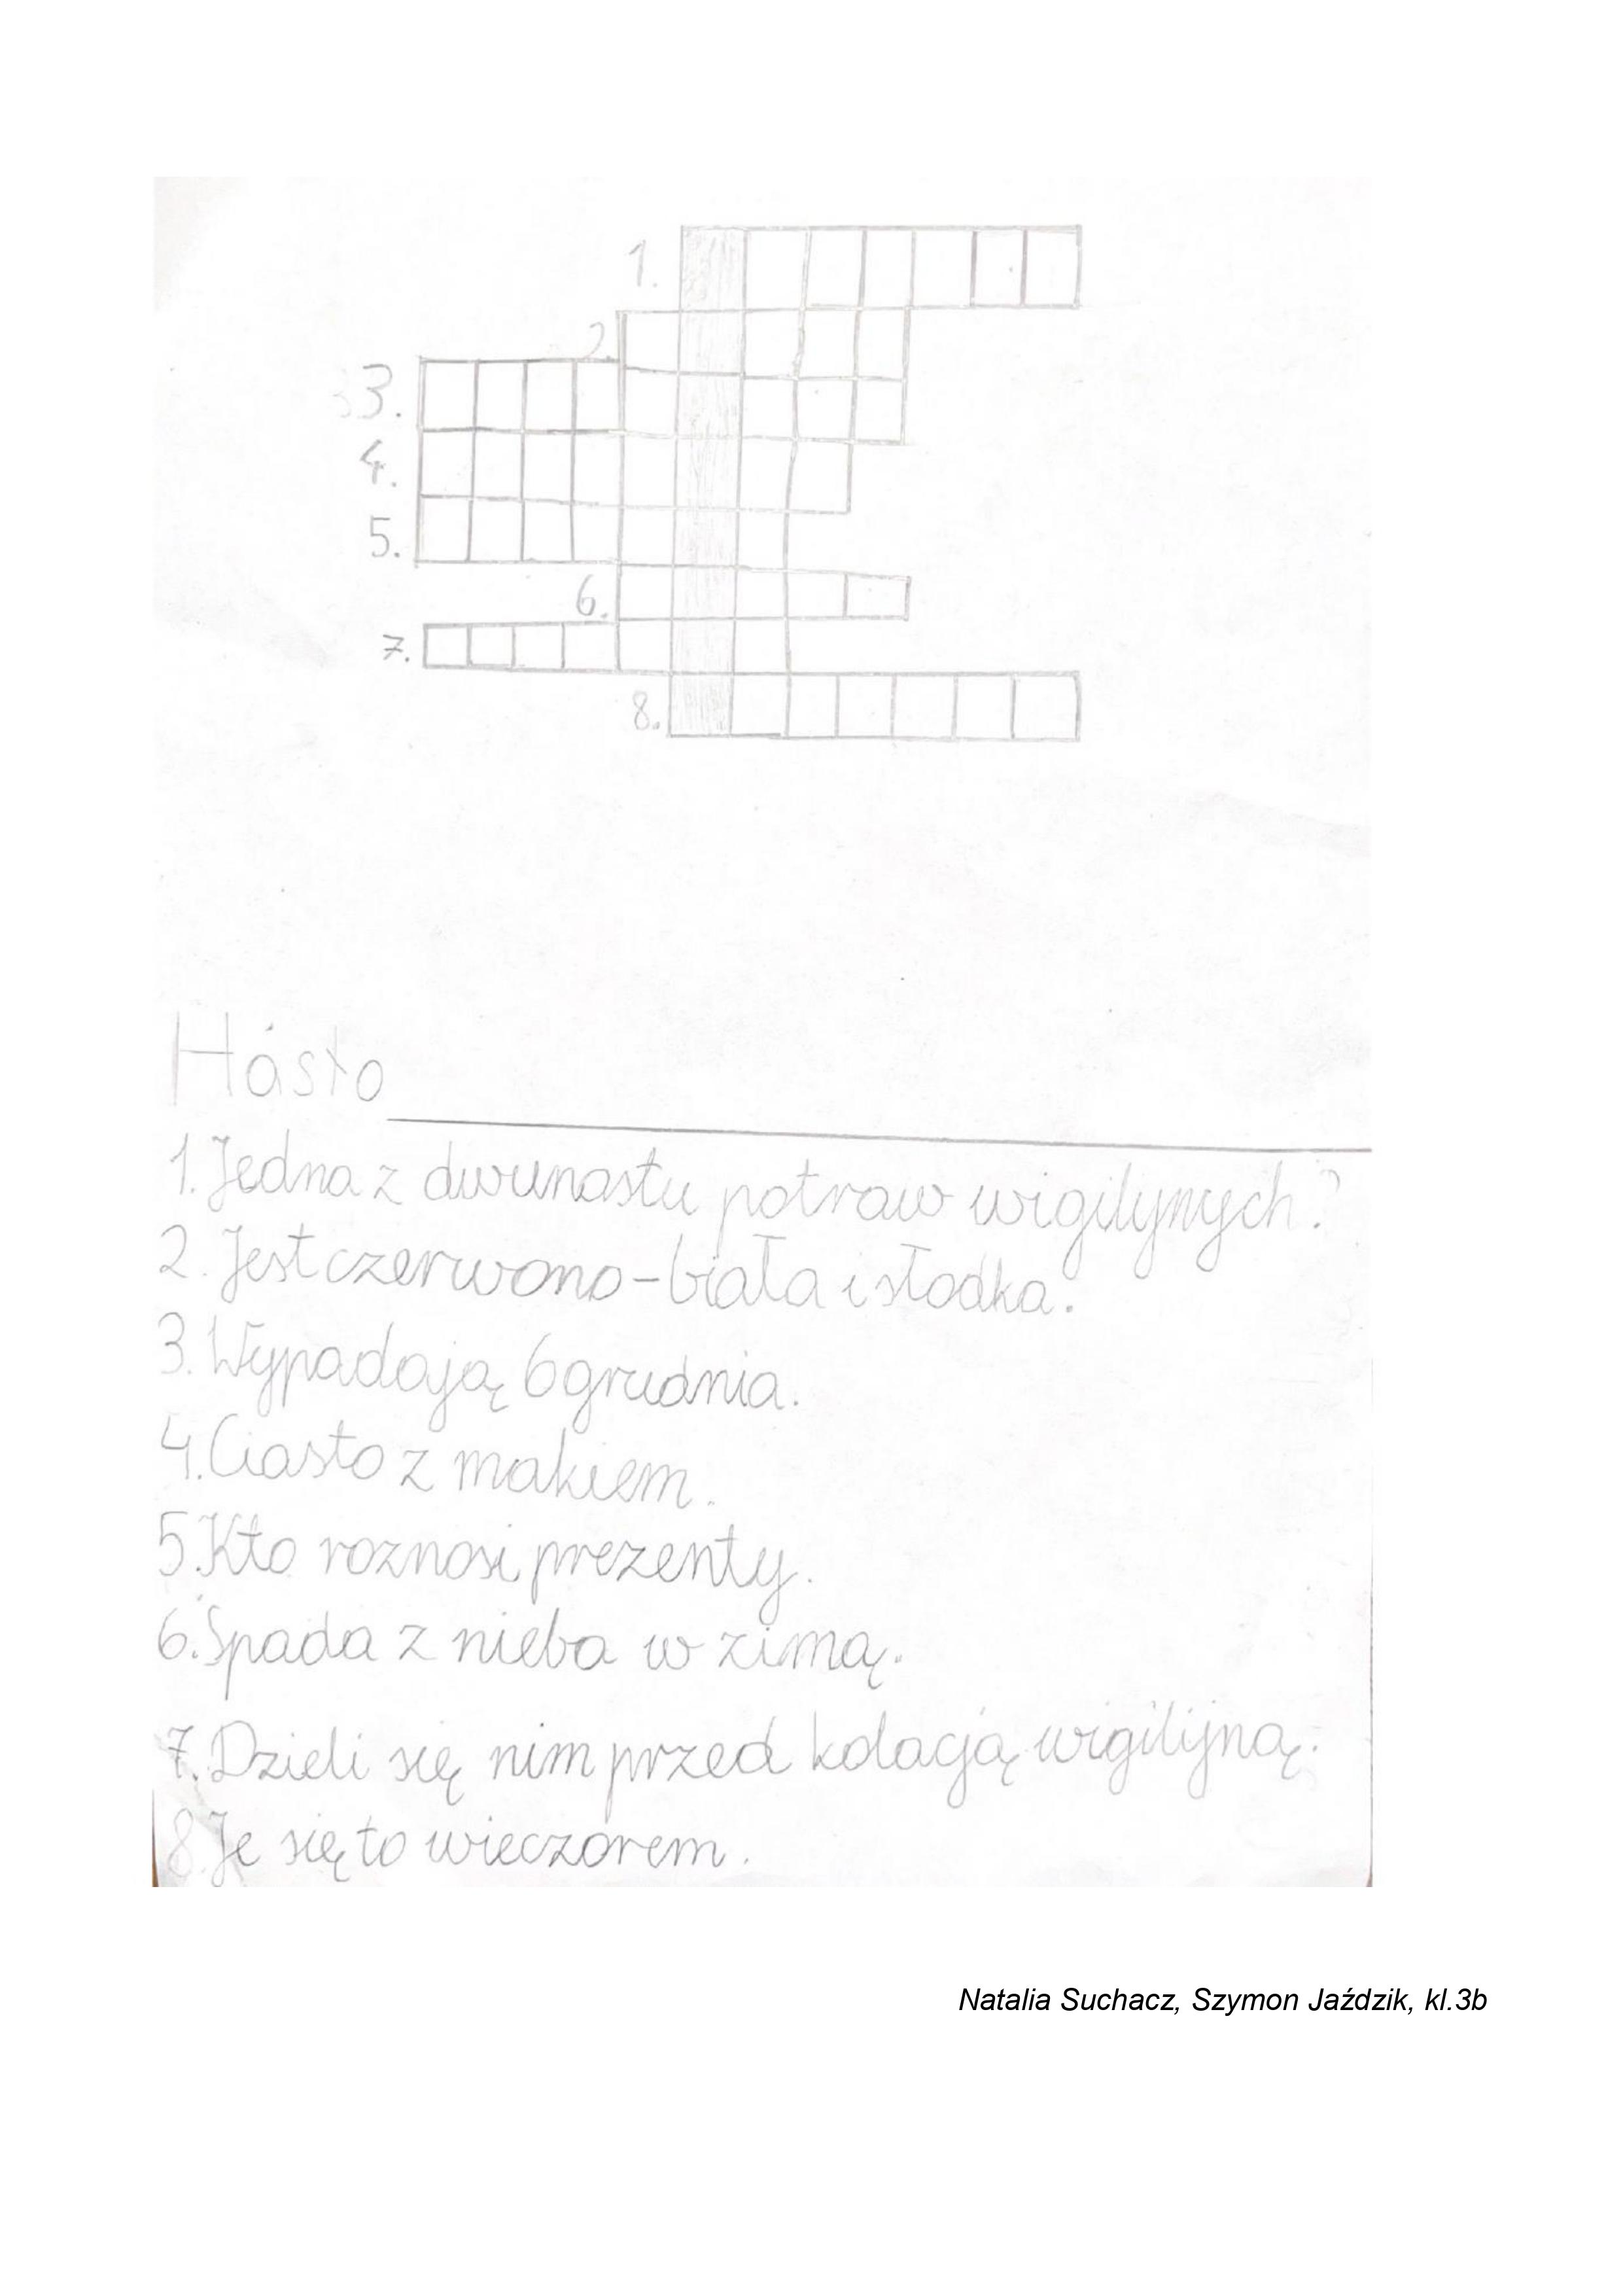 1.
2.
3.
4.
5.
6.
7.
8.
Hasło
1. Jedna z dwunastu potraw wigilynych?
2. Jest czerwono-biała i słodka.
3. Wypadają 6 grudnia.
4. Ciasto z makiem.
5. Kto roznosi prezenty.
6. Spada z nieba w zimą.
7. Dzieli się nim przed kolacją wigilijną.
8. Je się to wieczorem.
Natalia Suchacz, Szymon Jaździk, kl.3b